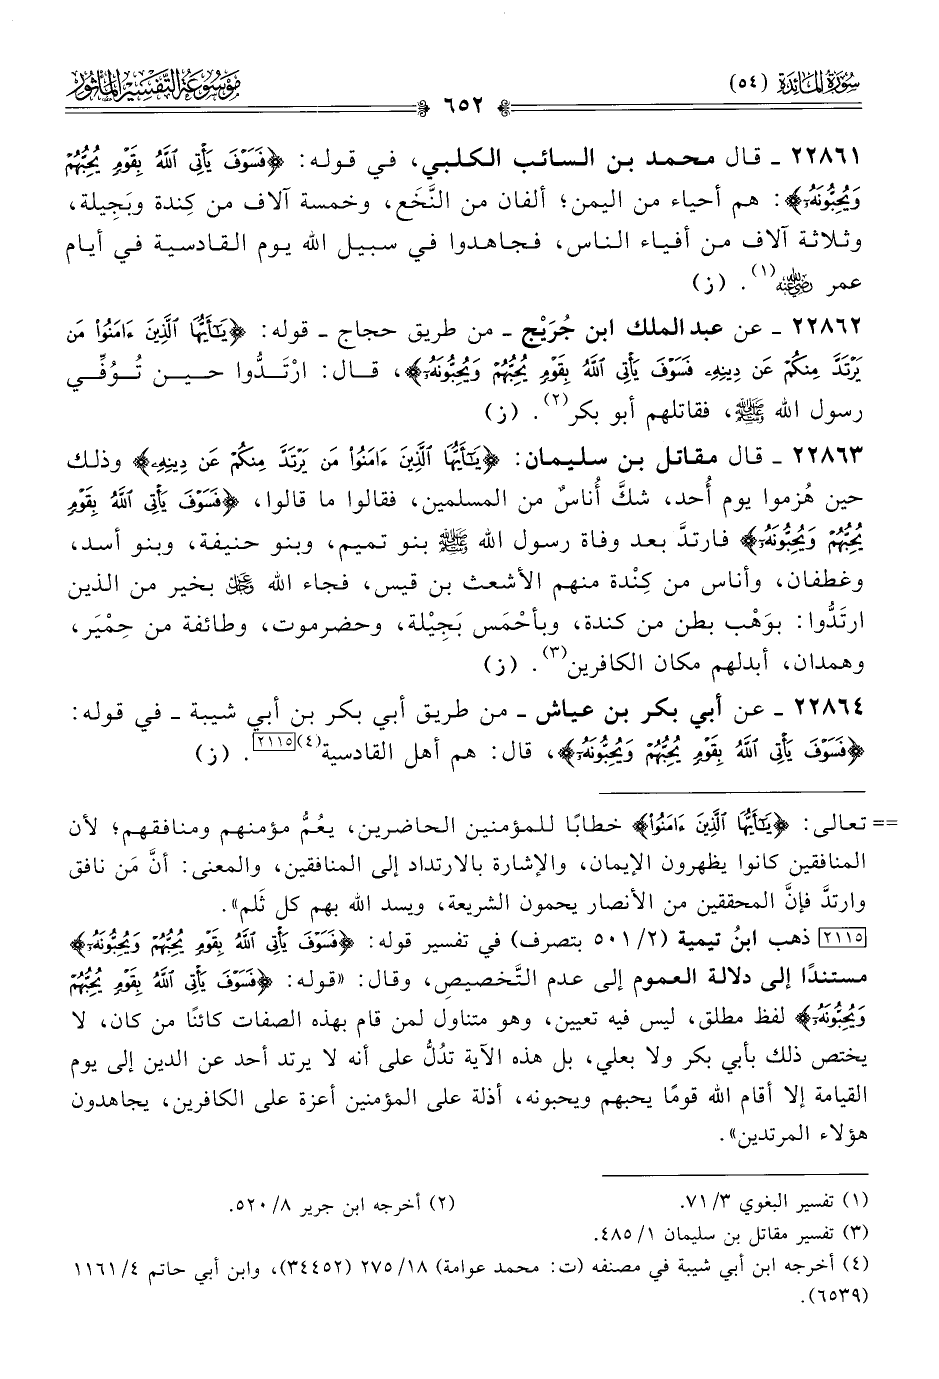 سُورَةُ المَائِدَة (٥٤)
٦٥٢
مَوْسُوعَة التَّفْسِيْر المَأْثُور
٢٢٨٦١ ـ قال محمد بن السائب الكلبي، في قوله: ﴿فَسَوْفَ يَأْتِي ٱللَّهُ بِقَوْمٍ يُحِبُّهُمْ
وَيُحِبُّونَهُۥ﴾: هم أحياء من اليمن؛ ألفان من النَّخَع، وخمسة آلاف من كِندة وبَجِيلة،
وثلاثة آلاف من أفياء الناس، فجاهدوا في سبيل الله يوم القادسية في أيام
عمر رضي الله عنه(١). (ز)
٢٢٨٦٢ ـ عن عبد الملك ابن جُرَيْج ـ من طريق حجاج ـ قوله: ﴿يَٰٓأَيُّهَا ٱلَّذِينَ ءَامَنُوا۟ مَن
يَرْتَدَّ مِنكُمْ عَن دِينِهِۦ فَسَوْفَ يَأْتِي ٱللَّهُ بِقَوْمٍ يُحِبُّهُمْ وَيُحِبُّونَهُۥٓ﴾، قال: ارْتَدُّوا حين تُوُفِّي
رسول الله ﷺ، فقاتلهم أبو بكر(٢). (ز)
٢٢٨٦٣ ـ قال مقاتل بن سليمان: ﴿يَٰٓأَيُّهَا ٱلَّذِينَ ءَامَنُوا۟ مَن يَرْتَدَّ مِنكُمْ عَن دِينِهِۦ﴾ وذلك
حين هُزموا يوم أُحد، شكَّ أُناسٌ من المسلمين، فقالوا ما قالوا، ﴿فَسَوْفَ يَأْتِي ٱللَّهُ بِقَوْمٍ
يُحِبُّهُمْ وَيُحِبُّونَهُۥٓ﴾ فارتدَّ بعد وفاة رسول الله ﷺ بنو تميم، وبنو حنيفة، وبنو أسد،
وغطفان، وأناس من كِنْدة منهم الأشعث بن قيس، فجاء الله عز وجل بخير من الذين
ارتَدُّوا: بوَهْب بطن من كندة، وبأحْمَس بَجِيْلة، وحضرموت، وطائفة من حِمْيَر،
وهمدان، أبدلهم مكان الكافرين(٣). (ز)
٢٢٨٦٤ ـ عن أبي بكر بن عياش ـ من طريق أبي بكر بن أبي شيبة ـ في قوله:
﴿فَسَوْفَ يَأْتِي ٱللَّهُ بِقَوْمٍ يُحِبُّهُمْ وَيُحِبُّونَهُۥٓ﴾، قال: هم أهل القادسية(٤)[٢١١٥]. (ز)
== تعالى: ﴿يَٰٓأَيُّهَا ٱلَّذِينَ ءَامَنُوا۟﴾ خطابًا للمؤمنين الحاضرين، يعُمُّ مؤمنهم ومنافقهم؛ لأن
المنافقين كانوا يظهرون الإيمان، والإشارة بالارتداد إلى المنافقين، والمعنى: أنَّ مَن نافق
وارتدَّ فإنَّ المحققين من الأنصار يحمون الشريعة، ويسد الله بهم كل ثَلم».
[٢١١٥] ذهب ابنُ تيمية (٢/ ٥٠١ بتصرف) في تفسير قوله: ﴿فَسَوْفَ يَأْتِي ٱللَّهُ بِقَوْمٍ يُحِبُّهُمْ وَيُحِبُّونَهُۥٓ﴾
مستندًا إلى دلالة العموم إلى عدم التَّخصيص، وقال: «قوله: ﴿فَسَوْفَ يَأْتِي ٱللَّهُ بِقَوْمٍ يُحِبُّهُمْ
وَيُحِبُّونَهُۥٓ﴾ لفظ مطلق، ليس فيه تعيين، وهو متناول لمن قام بهذه الصفات كائنًا من كان، لا
يختص ذلك بأبي بكر ولا بعلي، بل هذه الآية تدُلُّ على أنه لا يرتد أحد عن الدين إلى يوم
القيامة إلا أقام الله قومًا يحبهم ويحبونه، أذلة على المؤمنين أعزة على الكافرين، يجاهدون
هؤلاء المرتدين».
(١) تفسير البغوي ٣/ ٧١. (٢) أخرجه ابن جرير ٨/ ٥٢٠.
(٣) تفسير مقاتل بن سليمان ١/ ٤٨٥.
(٤) أخرجه ابن أبي شيبة في مصنفه (ت: محمد عوامة) ١٨/ ٢٧٥ (٣٤٤٥٢)، وابن أبي حاتم ٤/ ١١٦١
(٦٥٣٩).